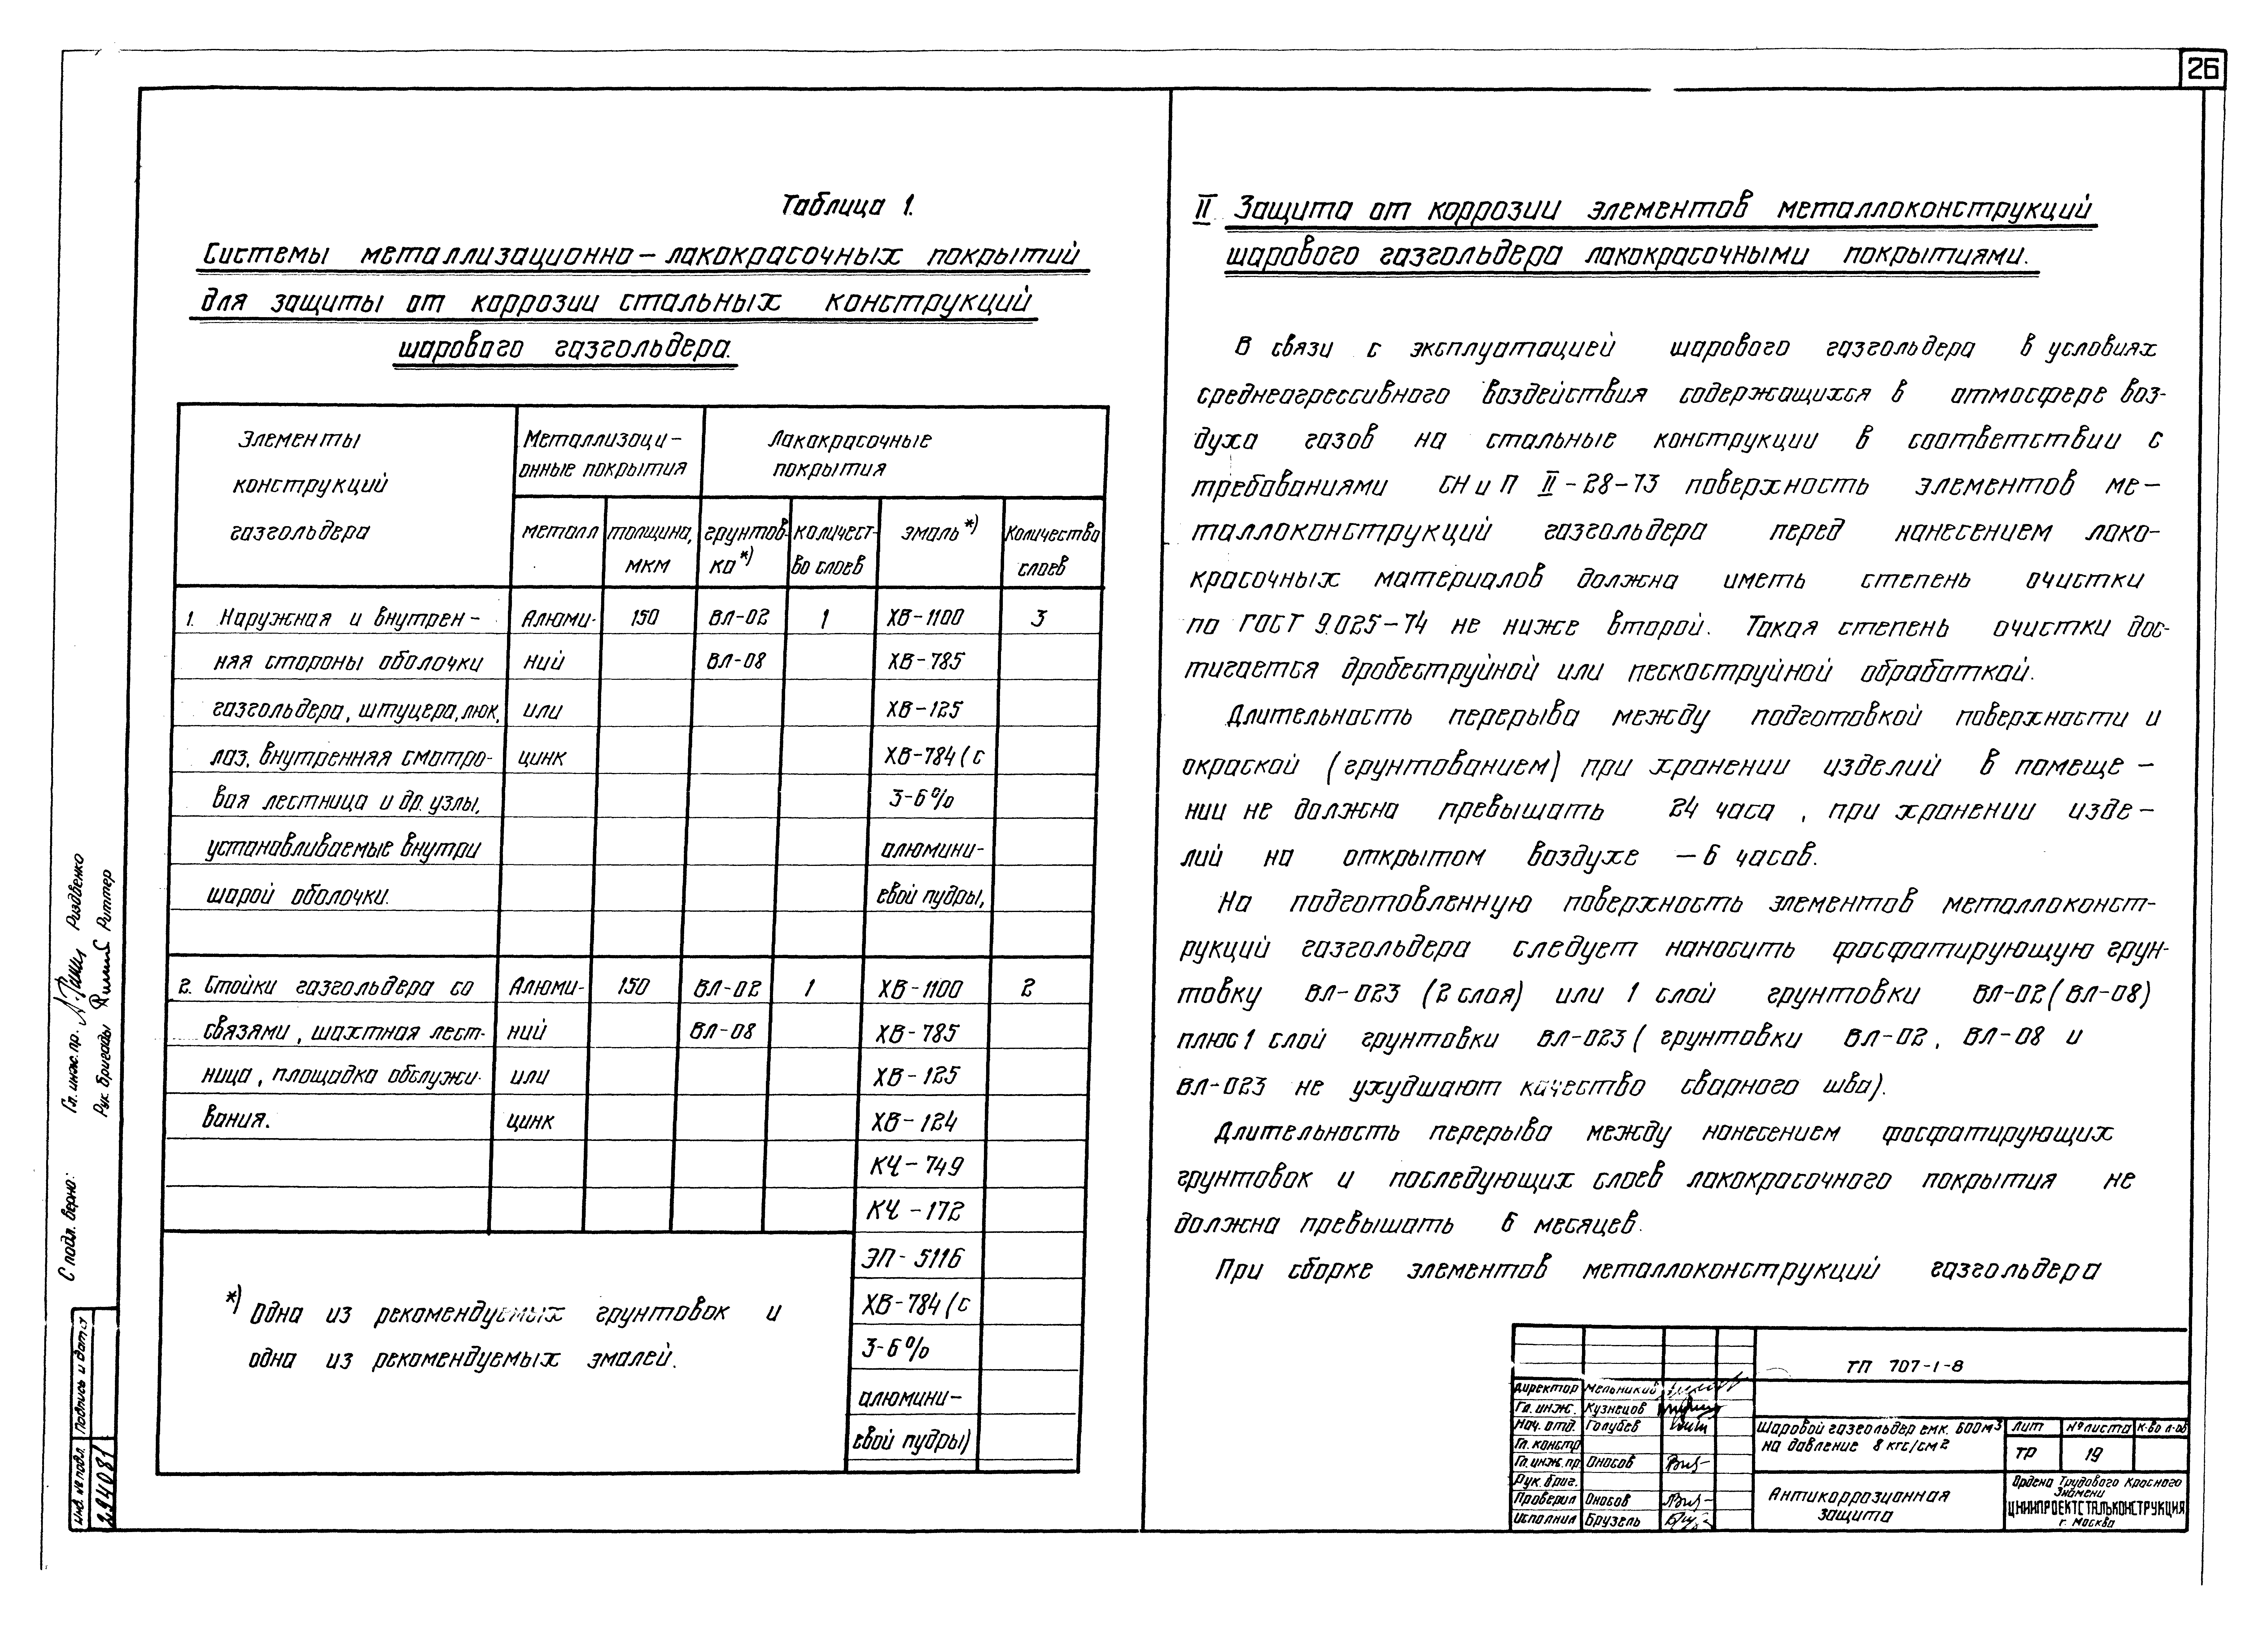 26
Таблица 1.
Системы металлизационно – лакокрасочных покрытий
для защиты от коррозии стальных конструкций
шарового газгольдера.
Элементы
конструкций
газгольдера
Металлизаци –
онные покрытия
Лакокрасочные
покрытия
металл
толщина,
мкм
грунтов-
ка*)
количест-
во слоев
эмаль*)
Количество
слоев
1. Наружная и внутрен – Алюми- 150 ВЛ-02 1 ХВ-1100 3
няя стороны оболочки ний ВЛ-08 ХВ-785
газгольдера, штуцера, люк, или ХВ-125
лаз, внутренняя смотро- цинк ХВ-784 (с
вая лестница и др. узлы, 3-6%
устанавливаемые внутри алюмини-
шарой оболочки. евой пудры,
2. Стойки газгольдера со Алюми- 150 ВЛ-02 1 ХВ-1100 2
связями, шахтная лест- ний ВЛ-08 ХВ-785
ница, площадка обслужи- или ХВ-125
вания. цинк ХВ-124
КЧ-749
КЧ-172
ЭП-5116
ХВ-784 (с
3-6%
алюмини-
евой пудры)
*) Одна из рекомендуемых грунтовок и
одна из рекомендуемых эмалей.
II Защита от коррозии элементов металлоконструкций
шарового газгольдера лакокрасочными покрытиями.
В связи с эксплуатацией шарового газгольдера в условиях
среднеагрессивного воздействия содержащихся в атмосфере воз-
духа газов на стальные конструкции в соответствии с
требованиями СНиП II-28-73 поверхность элементов ме-
таллоконструкций газгольдера перед нанесением лако-
красочных материалов должна иметь степень очистки
по ГОСТ 9.025-74 не ниже второй. Такая степень очистки дос-
тигается дробеструйной или пескоструйной обработкой.
Длительность перерыва между подготовкой поверхности и
окраской (грунтованием) при хранении изделий в помеще –
нии не должна превышать 24 часа, при хранении изде –
лий на открытом воздухе – 6 часов.
На подготовленную поверхность элементов металлоконст-
рукций газгольдера следует наносить фосфатирующую грун-
товку ВЛ-023 (2 слоя) или 1 слой грунтовки ВЛ-02 (ВЛ-08)
плюс 1 слой грунтовки ВЛ-023 (грунтовки ВЛ-02, ВЛ-08 и
ВЛ-023 не ухудшают качество сварного шва).
Длительность перерыва между нанесением фосфатирующих
грунтовок и последующих слоев лакокрасочного покрытия не
должна превышать 6 месяцев.
При сборке элементов металлоконструкций газгольдера
ТП 707-1-8
Директор Мельников
Гл. инж. Кузнецов
Нач. отд. Голубев
Гл. констр
Гл. инж. пр Оносов
Рук. бриг.
Проверил Оносов
Исполнил Брузель
Шаровой газгольдер емк. 600м³
на давление 8 кгс/см²
Лит № листа К-во л-ов
ТР 19
Антикоррозионная
защита
Ордена Трудового Красного
Знамени
ЦНИИПРОЕКТСТАЛЬКОНСТРУКЦИЯ
г. Москва
С подл. верно:
Гл. инж. пр. Роздвенко
Рук. бригады Риттер
Инв. № подл. Подпись и дата
294081